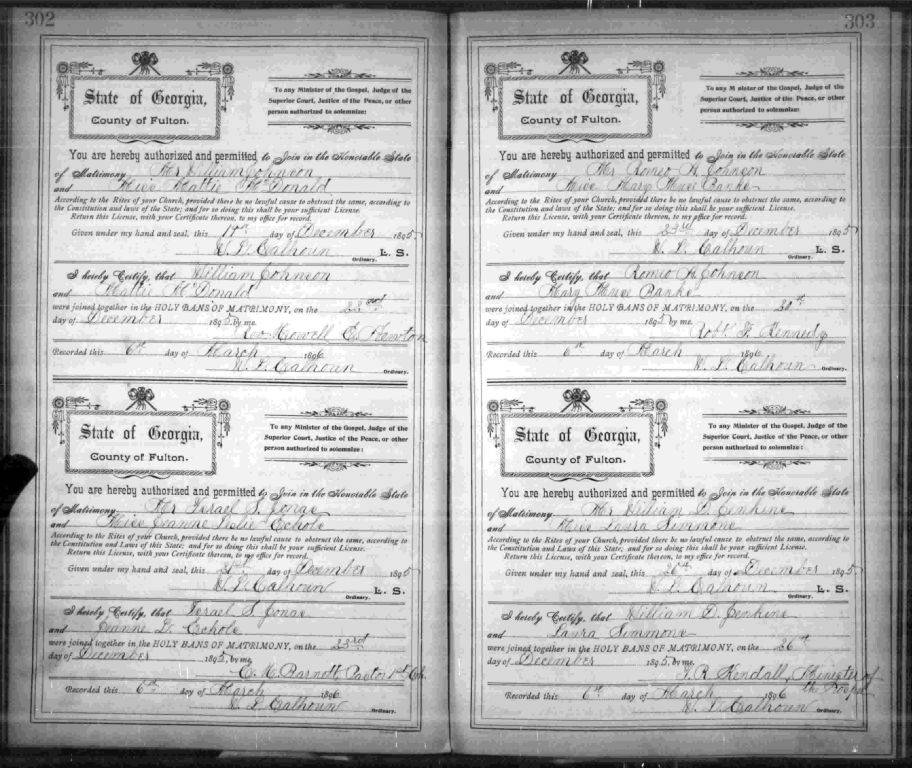 302
State of Georgia,
County of Fulton.
To any Minister of the Gospel, Judge of the
Superior Court, Justice of the Peace, or other
person authorized to solemnize:
You are hereby authorized and permitted to Join in the Honorable State
of Matrimony Mr William Johnson
and Miss Mattie McDonald
According to the Rites of your Church, provided there be no lawful cause to obstruct the same, according to
the Constitution and laws of the State; and for so doing this shall be your sufficient License.
Return this License, with your Certificate thereon, to my office for record.
Given under my hand and seal, this day of December 1895
W. L. Calhoun L. S.
Ordinary.
I hereby Certify, that William Johnson
and Mattie McDonald
were joined together in the HOLY BANS OF MATRIMONY, on the 22nd
day of December 1895, by me.
Rev. Howell E. Newton
Recorded this 6th day of March 1896
W. L. Calhoun Ordinary.
State of Georgia,
County of Fulton.
To any Minister of the Gospel, Judge of the
Superior Court, Justice of the Peace, or other
person authorized to solemnize:
You are hereby authorized and permitted to Join in the Honorable State
of Matrimony Mr Israel S. Jonas
and Miss Jeanne Leslie Echols
According to the Rites of your Church, provided there be no lawful cause to obstruct the same, according to the
Constitution and Laws of this State; and for so doing this shall be your sufficient License.
Return this License, with your Certificate thereon, to my office for record.
Given under my hand and seal, this day of December 1895
W. L. Calhoun L. S.
Ordinary.
I hereby Certify, that Israel S. Jonas
and Jeanne L. Echols
were joined together in the HOLY BANS OF MATRIMONY, on the 23rd
day of December 1895, by me,
Barnett Pastor 1st Ch.
Recorded this 6th day of March 1896
W. L. Calhoun Ordinary.
303
State of Georgia,
County of Fulton.
To any Minister of the Gospel, Judge of the
Superior Court, Justice of the Peace, or other
person authorized to solemnize:
You are hereby authorized and permitted to Join in the Honorable State
of Matrimony Mr Romeo H. Johnson
and Miss Mary Banks
According to the Rites of your Church, provided there be no lawful cause to obstruct the same, according to
the Constitution and laws of the State; and for so doing this shall be your sufficient License.
Return this License, with your Certificate thereon, to my office for record.
Given under my hand and seal, this 23rd day of December 1895
W. L. Calhoun L. S.
Ordinary.
I hereby Certify, that Romeo H. Johnson
and Mary Banks
were joined together in the HOLY BANS OF MATRIMONY, on the
day of December 1895 by me.
Robt. F. Kennedy
Recorded this 6th day of March 1896
W. L. Calhoun Ordinary.
State of Georgia,
County of Fulton.
To any Minister of the Gospel, Judge of the
Superior Court, Justice of the Peace, or other
person authorized to solemnize:
You are hereby authorized and permitted to Join in the Honorable State
of Matrimony Mr William D. Jenkins
and Miss Laura Simmons
According to the Rites of your Church, provided there be no lawful cause to obstruct the same, according to the
Constitution and Laws of this State; and for so doing this shall be your sufficient License.
Return this License, with your Certificate thereon, to my office for record.
Given under my hand and seal, this day of December 1895
W. L. Calhoun L. S.
Ordinary.
I hereby Certify, that William D. Jenkins
and Laura Simmons
were joined together in the HOLY BANS OF MATRIMONY, on the 26th
day of December 1895, by me.
T. R. Kendall, Minister of
the Gospel
Recorded this 6th day of March 1896
W. L. Calhoun Ordinary.